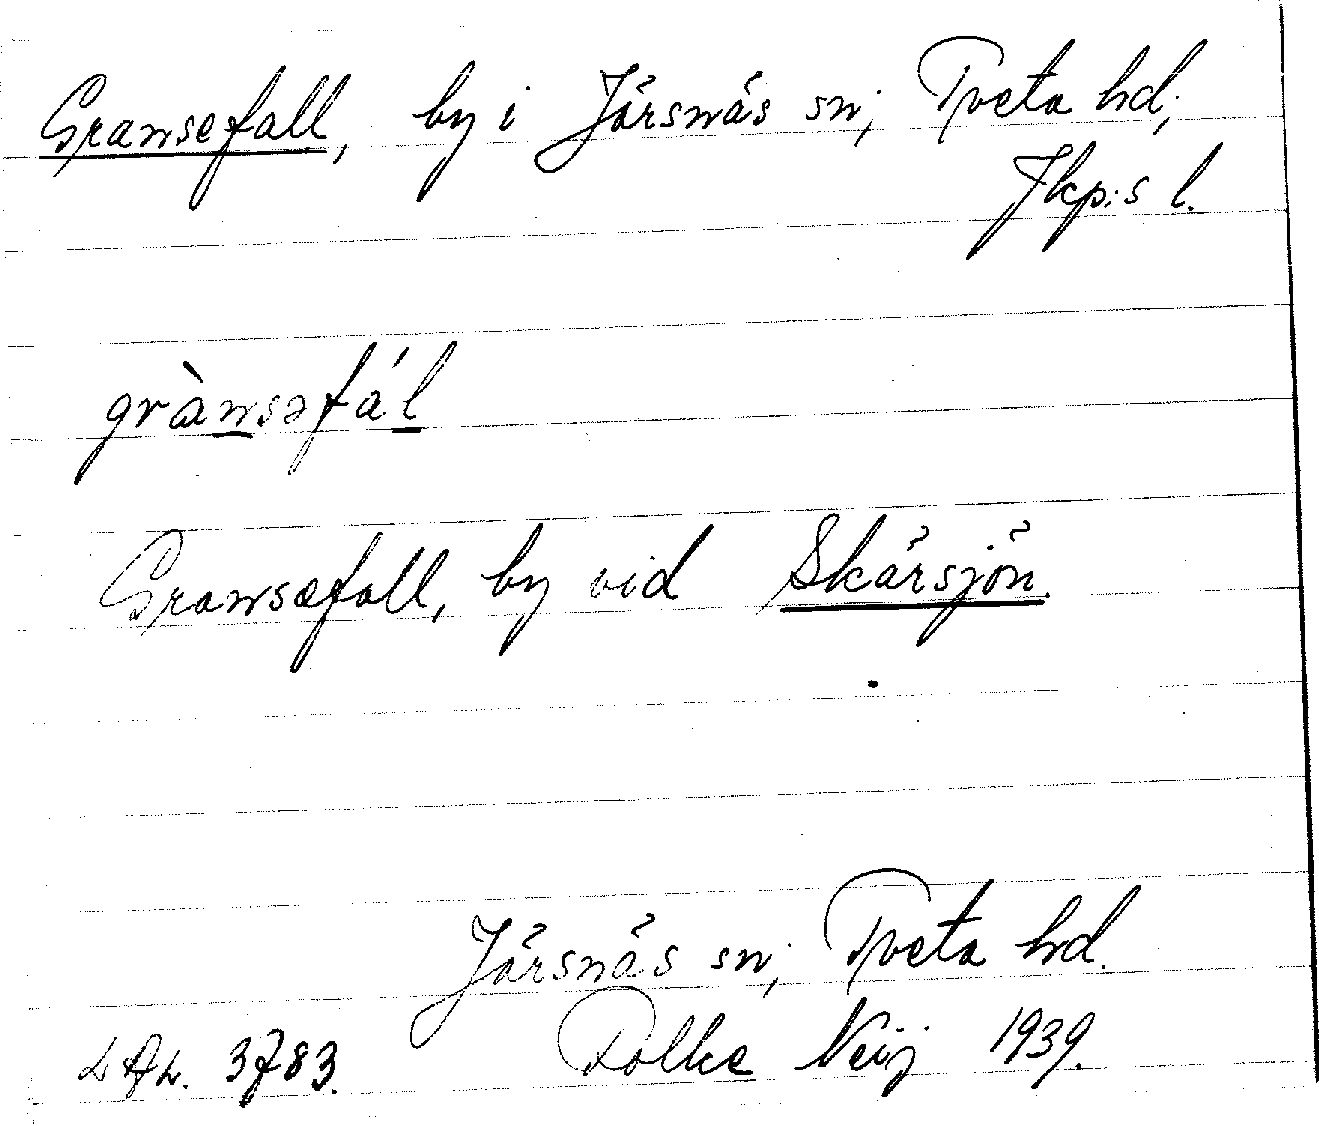 Gransefall, by i Järsnäs sn; Tveta hd;
Jkp:s l.
grànsəfál
Gransefall, by vid Skärsjön.
Järsnäs sn; Tveta hd.
3783. Folke Neij 1939.